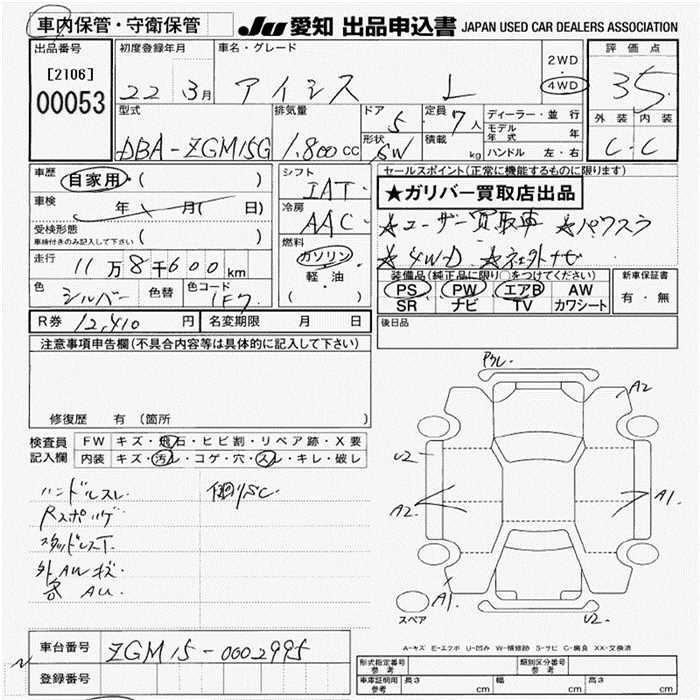 車内保管・守衛保管
JU 愛知 出品申込書 JAPAN USED CAR DEALERS ASSOCIATION
出品番号
[2106]
00053
初度登録年月
22 3月
車名・グレード
アイシス L
2WD
4WD
評価点
3.5
外装 内装
C・C
型式
DBA-ZGM15G
排気量
1,800cc
ドア
5
形状
SW
定員
7人
積載
kg
ディーラー・並行
モデル年式 年
ハンドル 左・右
車歴
自家用・( )
車検
年 月( 日)
受検形態
車検付きのみ記入して下さい ( )
走行
11万8千600km
色
シルバー
色替
色コード
1F7
シフト
IAT
冷房
AAC
燃料
ガソリン
軽・油
( )
セールスポイント(正常に機能するものに限ります)
★ガリバー買取店出品
★ユーザー買取車 ★パワスラ
★4WD ★社外ナビ
装備品(純正品に限り○をつけてください)
PS PW エアB AW
SR ナビ TV カワシート
新車保証書
有・無
R券 12,410円
名変期限 月 日
後日品
注意事項申告欄(不具合内容等は具体的に記入して下さい)
修復歴 有(箇所 )
検査員記入欄
FW キズ・飛石・ヒビ割・リペア跡・X要
内装 キズ・汚レ・コゲ・穴・スレ・キレ・破レ
ハンドルスレ
スタッドレスT.
外AWキズ
アクレ.
A2
U2
A2
A1.
A1
U2.
スペア
A-キズ E-エクボ U-凹み W-補修跡 S-サビ C-腐食 XX-交換済
車台番号 ZGM15-0002995
登録番号
型式指定番号 参考
類別区分番号 参考
車庫証明用 参考 長さ cm 幅 cm 高さ cm